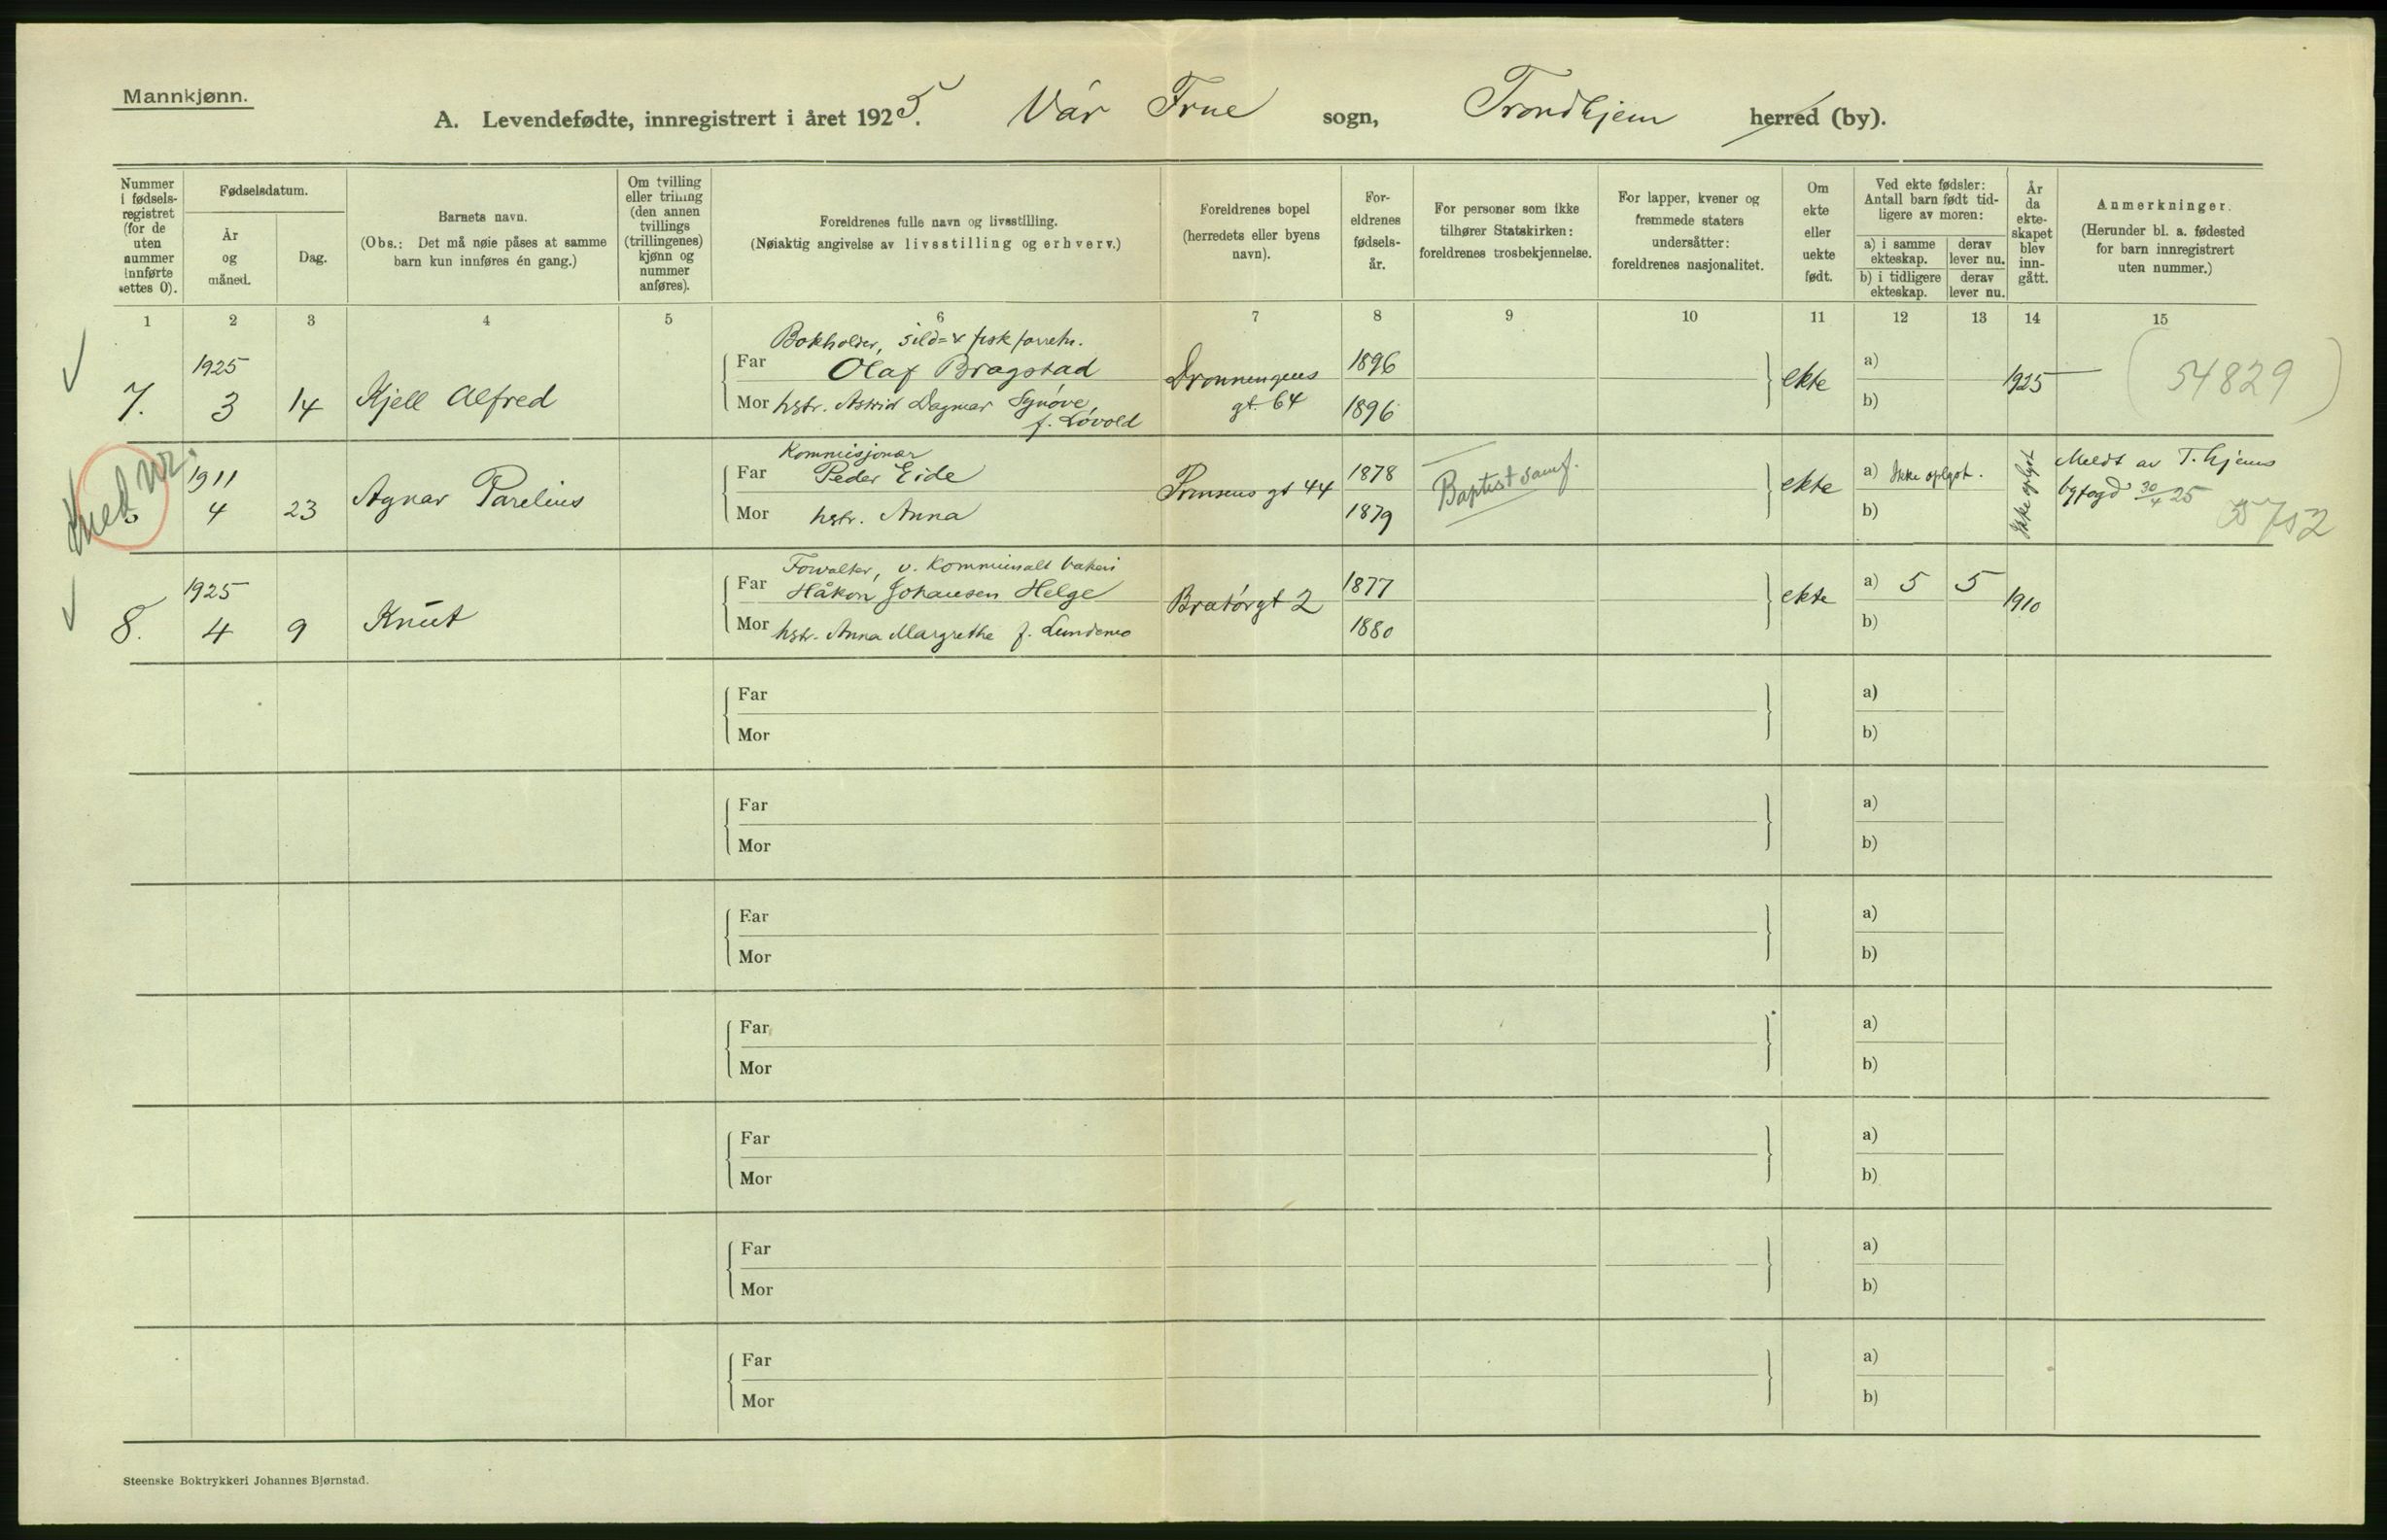 Mannkjønn.
A. Levendefødte, innregistrert i året 1925. Vår Frue sogn, Trondhjem herred (by).
Nummer i fødselsregistret (for de uten nummer innførte settes 0).
Fødselsdatum.
År og måned.
Dag.
Barnets navn.
(Obs.: Det må nøie påses at samme barn kun innføres én gang.)
Om tvilling eller trilling (den annen tvillings (trillingenes) kjønn og nummer anføres).
Foreldrenes fulle navn og livsstilling.
(Nøiaktig angivelse av livsstilling og erhverv.)
Foreldrenes bopel (herredets eller byens navn).
Foreldrenes fødselsår.
For personer som ikke tilhører Statskirken: foreldrenes trosbekjennelse.
For lapper, kvener og fremmede staters undersåtter: foreldrenes nasjonalitet.
Om ekte eller uekte født.
Ved ekte fødsler: Antall barn født tidligere av moren:
a) i samme ekteskap.
derav lever nu.
b) i tidligere ekteskap.
derav lever nu.
År da ekteskapet blev inngått.
Anmerkninger.
(Herunder bl. a. fødested for barn innregistrert uten nummer.)
1 2 3 4 5 6 7 8 9 10 11 12 13 14 15
7. 1925 3 14 Kjell Alfred
Bokholder, sild= & fiskforretn.
Far Olaf Bragstad
Mor hstr. Astrid Dagmar Synøve,
f. Løvold
Dronningens
gt. 64
1896
1896
ekte
a)
b)
1925
(54829)
1911 4 23 Agnar Parelius
Kommisjonær
Far Peder Eide
Mor hstr. Anna
Prinsens gt 44
1878
1879
Baptist samf.
ekte
a) Ikke oplyst.
b)
Ikke oplyst
Meldt av T.hjems
byfogd 30/4 25
8. 1925 4 9 Knut
Forvalter, v. Kommunalt bakeri
Far Håkon Johansen Helge
Mor hstr. Anna Margrethe f. Lundemo
Bratørgt 2
1877
1880
ekte
a) 5 5
b)
1910
Far
Mor
a)
b)
Far
Mor
a)
b)
Far
Mor
a)
b)
Far
Mor
a)
b)
Far
Mor
a)
b)
Far
Mor
a)
b)
Far
Mor
a)
b)
Steenske Boktrykkeri Johannes Bjørnstad.